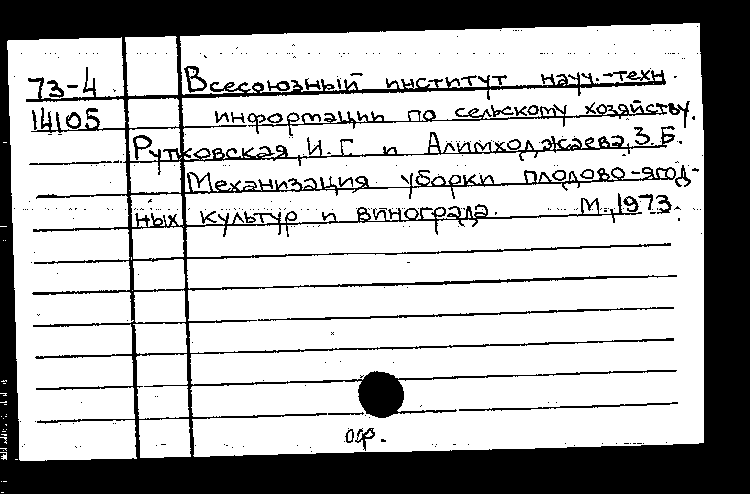 73-4 Всесоюзный институт науч.-техн.
14105 информации по сельскому хозяйству.
Рутковская, И.Г. и Алимходжаева, З.Б.
Механизация уборки плодово-ягод-
ных культур и винограда. М., 1973.